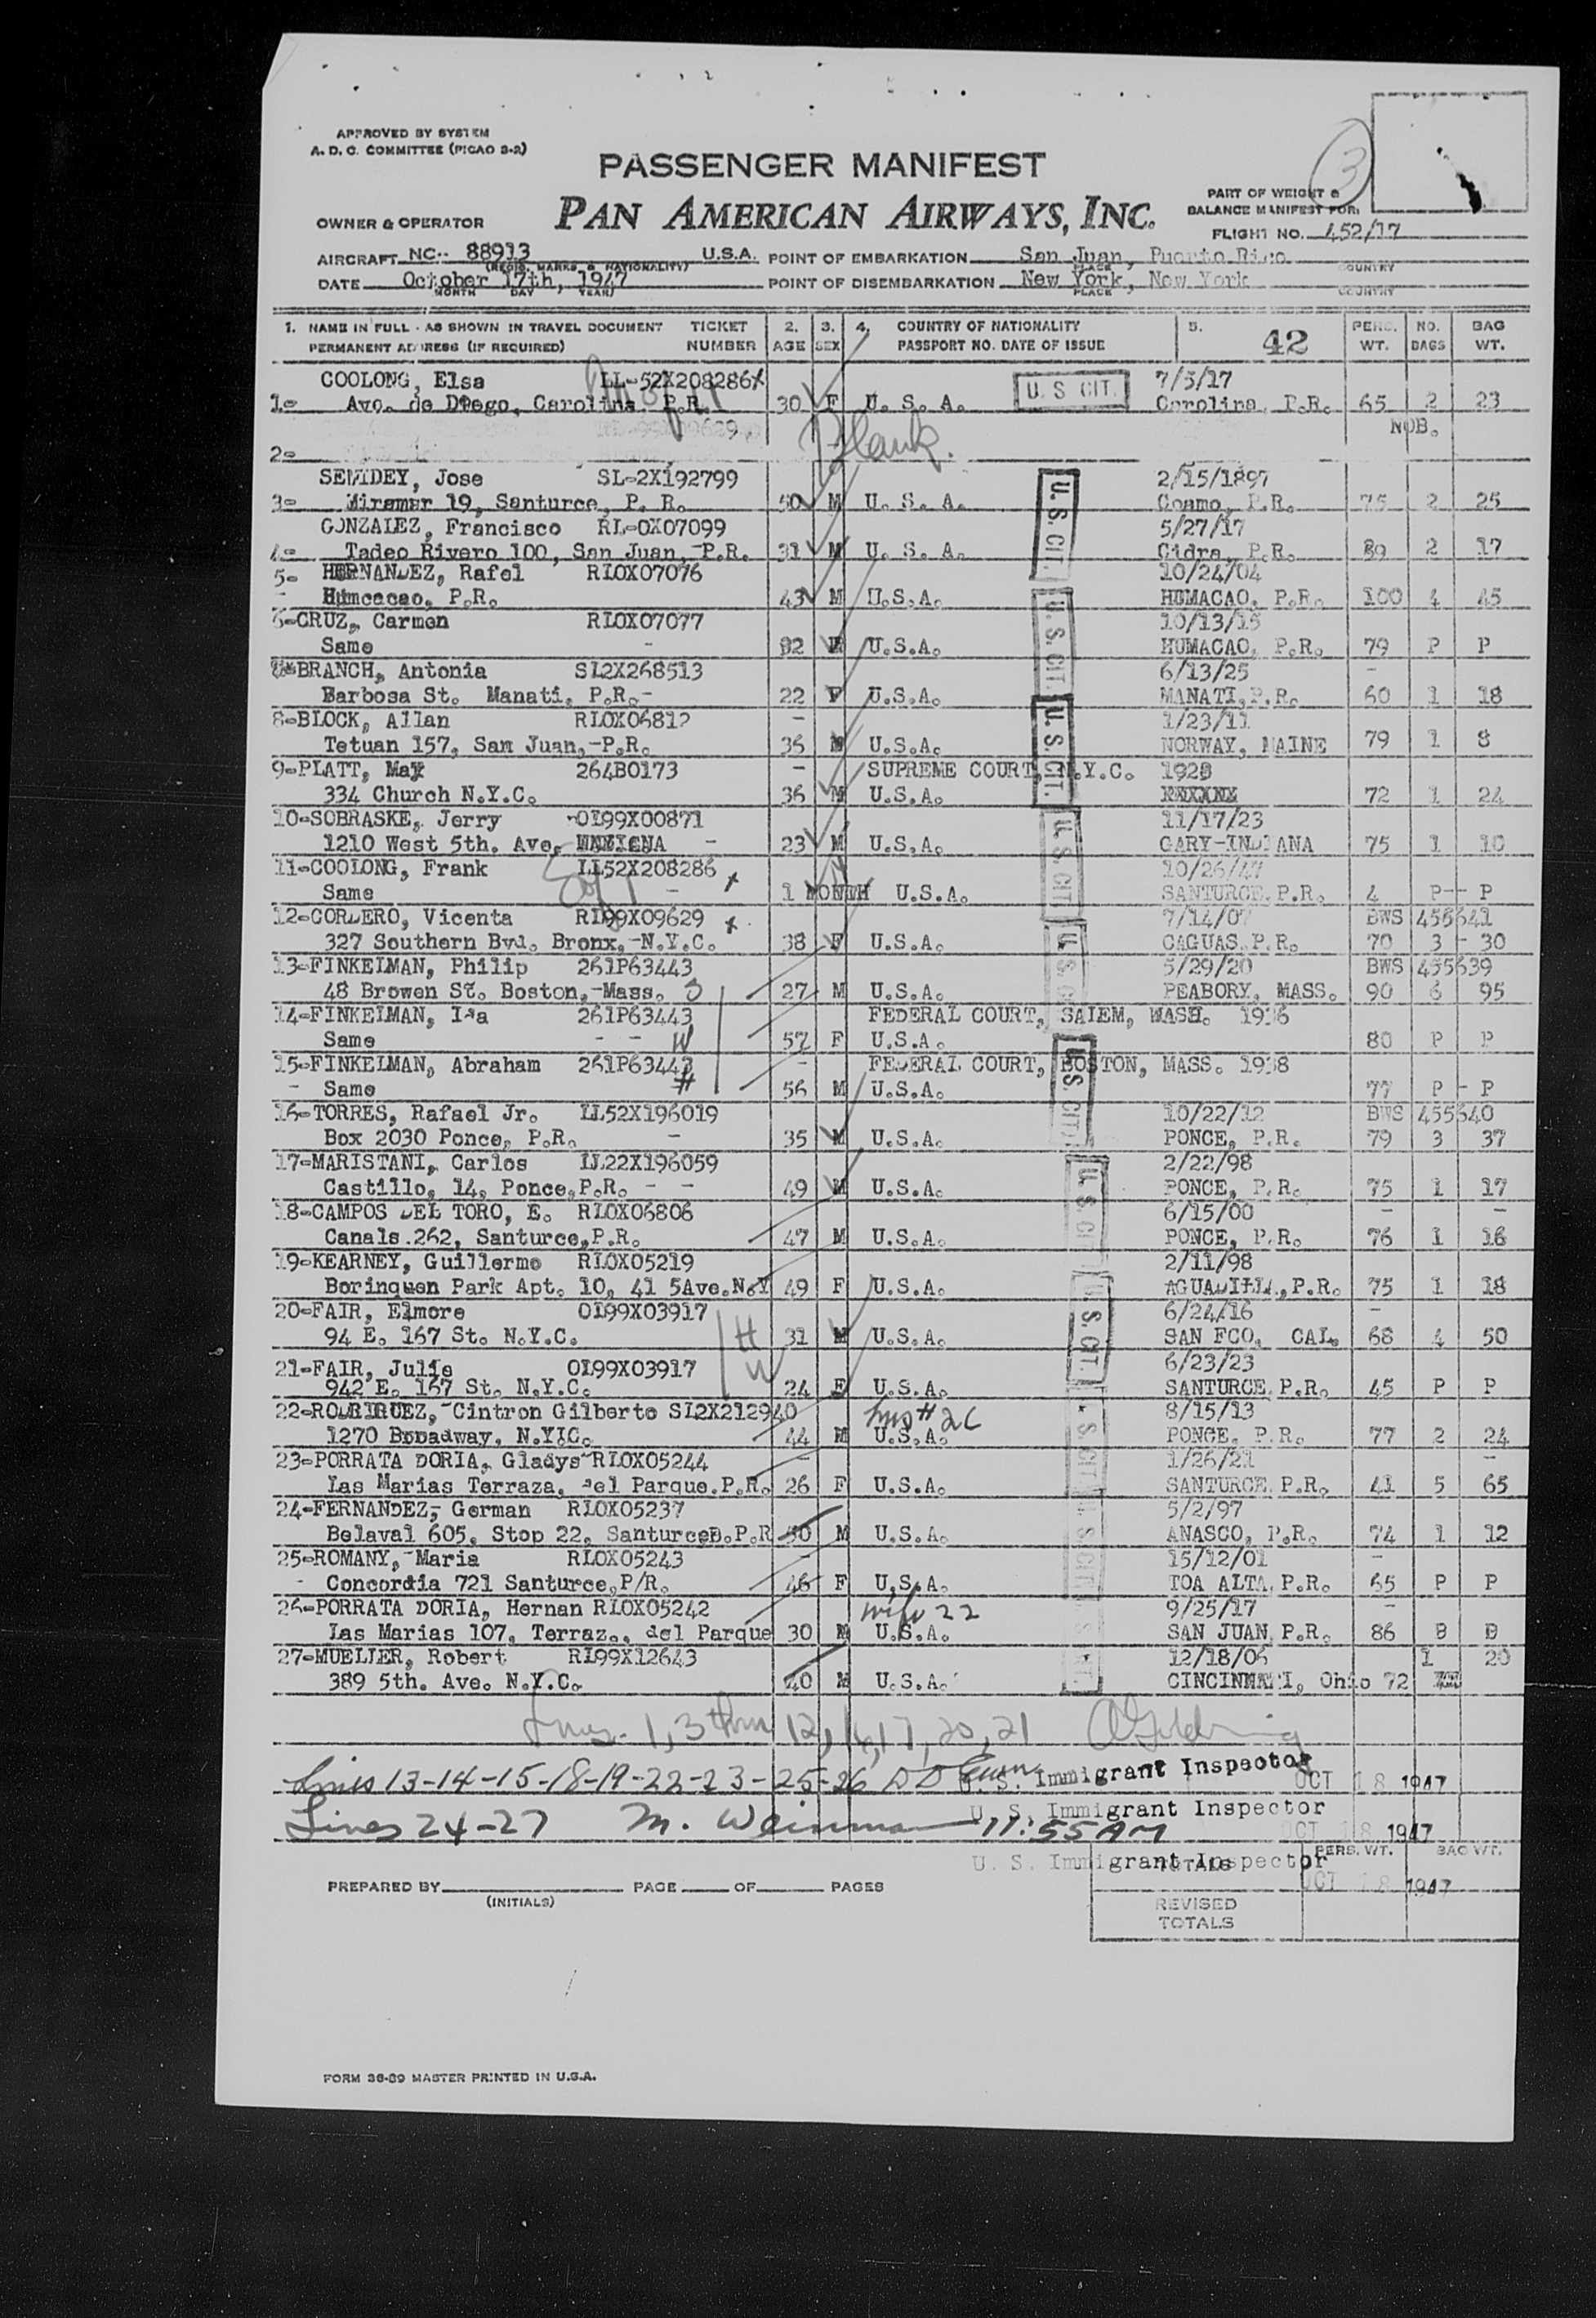 APPROVED BY SYSTEM
A. D. C. COMMITTEE (PICAO 3-2)
3
PASSENGER MANIFEST
PAN AMERICAN AIRWAYS, INC.
PART OF WEIGHT &
BALANCE MANIFEST FOR:
OWNER & OPERATOR
FLIGHT NO. 452/17
AIRCRAFT NC-- 88913 U.S.A. POINT OF EMBARKATION San Juan, Puerto Rico
(REGIS. MARKS & NATIONALITY) PLACE COUNTRY
DATE October 17th, 1947 POINT OF DISEMBARKATION New York, New York
MONTH DAY YEAR) PLACE COUNTRY
1. NAME IN FULL - AS SHOWN IN TRAVEL DOCUMENT TICKET 2. 3. 4. COUNTRY OF NATIONALITY 5. 42 PERS. NO. BAG
PERMANENT ADDRESS (IF REQUIRED) NUMBER AGE SEX PASSPORT NO. DATE OF ISSUE WT. BAGS WT.
COOLONG, Elsa LL-52X208286 U. S CIT. 7/5/17
1- Ave. de Diego, Carolina P.R. 30 F U. S. A. Carolina, P.R. 65 2 23
NOB.
2- Blank.
SEMIDEY, Jose SL-2X192799 2/15/1897
3- Miramar 19, Santurce, P. R. 50 M U. S. A. Coamo, P.R. 75 2 25
GONZALEZ, Francisco RL-0X07099 U. S. CIT. 5/27/17
4- Tadeo Rivero 100, San Juan, P.R. 31 M U. S. A. Cidra, P.R. 89 2 17
5- HERNANDEZ, Rafel RLOX07076 10/24/04
Humcacao, P.R. 43 M U.S.A. HUMACAO, P.R. 100 4 45
6-CRUZ, Carmen RLOX07077 U. S. CIT. 10/13/15
Same 32 F U.S.A. HUMACAO, P.R. 79 P P
BRANCH, Antonia SL2X268513 6/13/25
Barbosa St. Manati, P.R.- 22 F U.S.A. MANATI, P.R. 60 1 18
8-BLOCK, Allan RLOX06812 U. S. CIT. 1/23/11
Tetuan 157, San Juan,-P.R. 36 M U.S.A. NORWAY, MAINE 79 1 8
9-PLATT, Max 264B0173 SUPREME COURT, N.Y.C. 1928
334 Church N.Y.C. 36 M U.S.A. 72 1 24
10-SOBRASKE, Jerry OI99X00871 11/17/23
1210 West 5th. Ave. 23 M U.S.A. GARY-INDIANA 75 1 10
11-COOLONG, Frank LL52X208286 U. S. CIT. 10/26/47
Same 1 MONTH U.S.A. SANTURCE, P.R. 4 P P
12-CORDERO, Vicenta RI99X09629 7/14/07 BWS 455641
327 Southern Bvd. Bronx,-N.Y.C. 38 F U.S.A. CAGUAS, P.R. 70 3 30
13-FINKELMAN, Philip 261P63443 5/29/20 BWS 455639
48 Browen St. Boston,-Mass. 27 M U.S.A. PEABORY, MASS. 90 6 95
14-FINKELMAN, Ida 261P63443 FEDERAL COURT, SALEM, WASH. 1936
Same W 57 F U.S.A. 80 P P
15-FINKELMAN, Abraham 261P63443 FEDERAL COURT, BOSTON, MASS. 1938
Same H 56 M U.S.A. 77 P P
16-TORRES, Rafael Jr. LL52X196019 10/22/12 BWS 455640
Box 2030 Ponce, P.R. 35 M U.S.A. PONCE, P.R. 79 3 37
17-MARISTANI, Carlos LL22X196059 2/22/98
Castillo, 14, Ponce,P.R. 49 M U.S.A. PONCE, P.R. 75 1 17
18-CAMPOS DEL TORO, E. RLOX06806 6/15/00
Canals 262, Santurce,P.R. 47 M U.S.A. PONCE, P.R. 76 1 16
19-KEARNEY, Guillermo RLOX05219 2/11/98
Borinquen Park Apt. 10, 41 5Ave.N.Y 49 F U.S.A. AGUADILLA, P.R. 75 1 18
20-FAIR, Elmore OI99X03917 6/24/16
94 E. 167 St. N.Y.C. H 31 M U.S.A. SAN FCO, CAL. 68 4 50
21-FAIR, Julie OI99X03917 W 6/23/23
942 E. 167 St. N.Y.C. 24 F U.S.A. SANTURCE, P.R. 45 P P
22-RODRIRUEZ, Cintron Gilberto SL2X212940 8/15/13
1270 Broadway, N.Y.C. 44 M U.S.A. PONCE, P.R. 77 2 24
23-PORRATA DORIA, Gladys RLOX05244 1/26/21
Las Marias Terraza, del Parque.P.R. 26 F U.S.A. SANTURCE, P.R. 41 5 65
24-FERNANDEZ, German RLOX05237 5/2/97
Belaval 605, Stop 22, Santurce. P.R 50 M U.S.A. ANASCO, P.R. 74 1 12
25-ROMANY, Maria RLOX05243 15/12/01
Concordia 721 Santurce,P/R. 46 F U.S.A. TOA ALTA, P.R. 65 P P
26-PORRATA DORIA, Hernan RLOX05242 wife 22 9/25/17
Las Marias 107, Terraz., del Parque 30 M U.S.A. SAN JUAN, P.R. 86
27-MUELLER, Robert RI99X12643 12/18/06 1 20
389 5th. Ave. N.Y.C. 40 M U.S.A. CINCINNATI, Ohio 72
Lines. 1, 3 thru 12, 16, 17, 20, 21
Lines 13-14-15-18-19-22-23-25-26 U. S. Immigrant Inspector OCT 18 1947
Lines 24-27 M. Weinman 11:55 AM U. S. Immigrant Inspector OCT 18 1947
U. S. Immigrant Inspector OCT 18 1947
TOTALS PERS. WT. BAG WT.
PREPARED BY PAGE OF PAGES
(INITIALS)
REVISED
TOTALS
FORM 36-89 MASTER PRINTED IN U.S.A.